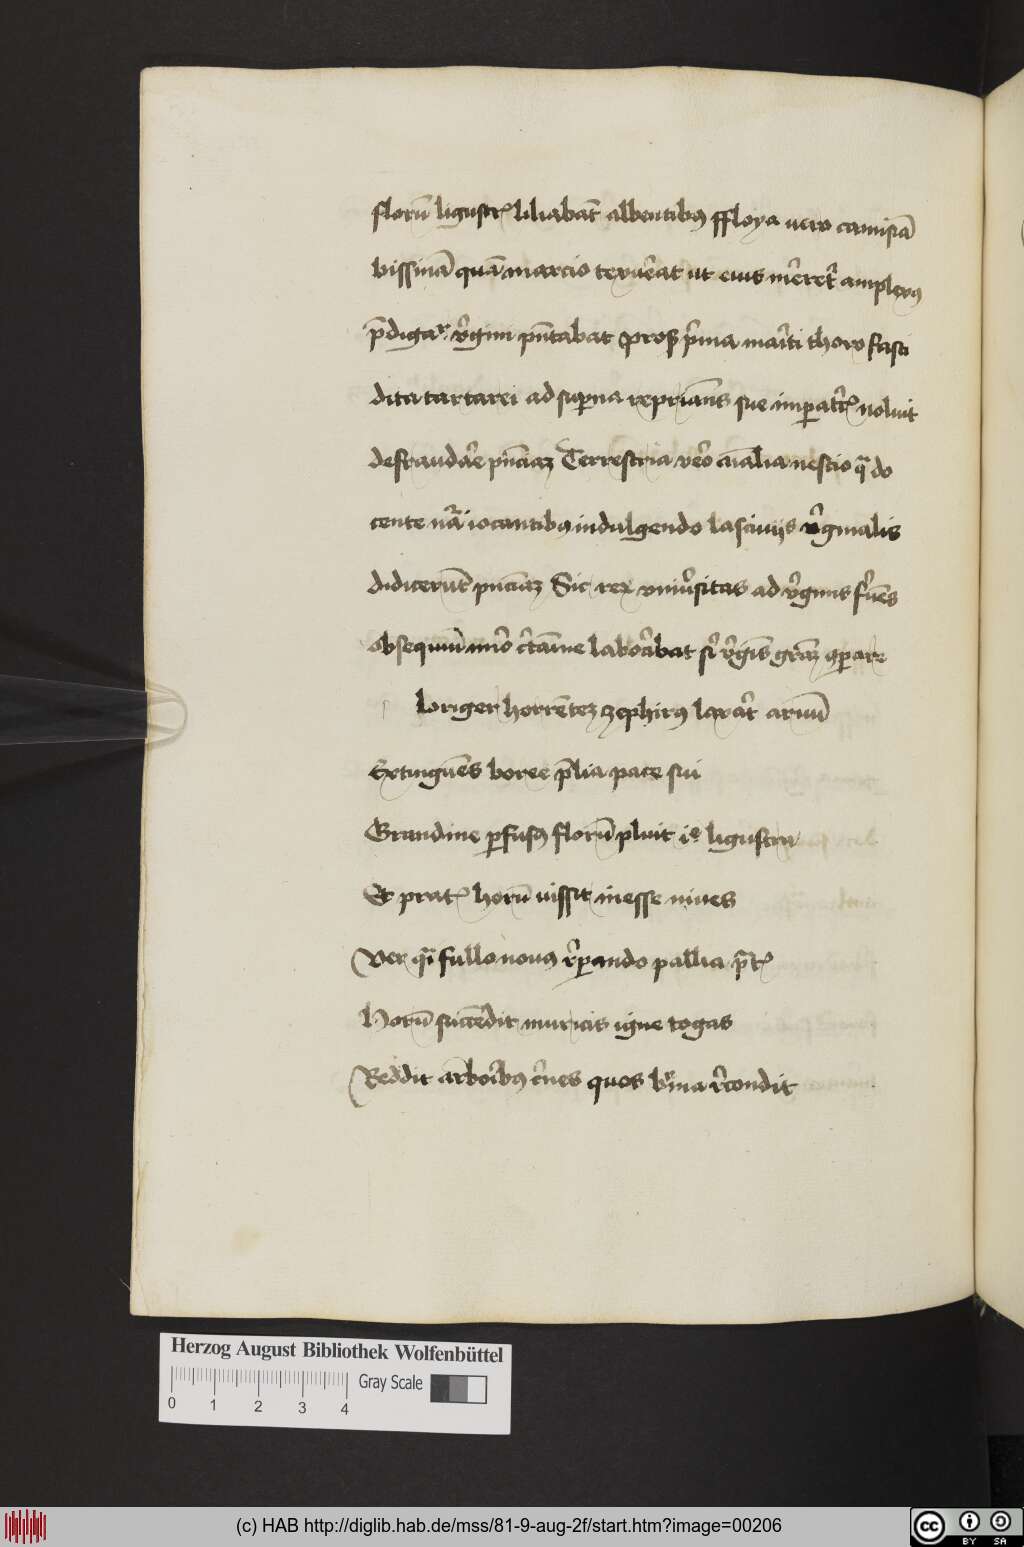 florū ligustr liliabat albentibꝯ ffloya uero camisiā
bissinā quā marcio texuerat ut eius meret amplexꝯ
pdiga virgini pntabat pros pina mariti thoro fasti
dita tartarei ad supna reprians sue impatr noluit
defraudare pnciaꝫ Terrestria vero aialia nescio q do
cente nra iocantibꝯ indulgendo lasciuijs virginalis
didicerūt pnciaꝫ Sic rex vniusitas ad virginis fues
obsequiū miro ctamine laborabat sibi virgis graꝫ cpare
loriger horrētez zephirꝯ laxat armū
Extinguēs boree plia pace sui
Grandine pfusꝯ florū pluit ligustra
Et prat horū iussit inesse niues
Ver qi fullo nouꝯ repando pallia prt
Horū succedit muricis igne togas
Reddit arboribꝯ cines quos bruma recondit
Herzog August Bibliothek Wolfenbüttel
Gray Scale
0 1 2 3 4
(c) HAB http://diglib.hab.de/mss/81-9-aug-2f/start.htm?image=00206
cc BY SA